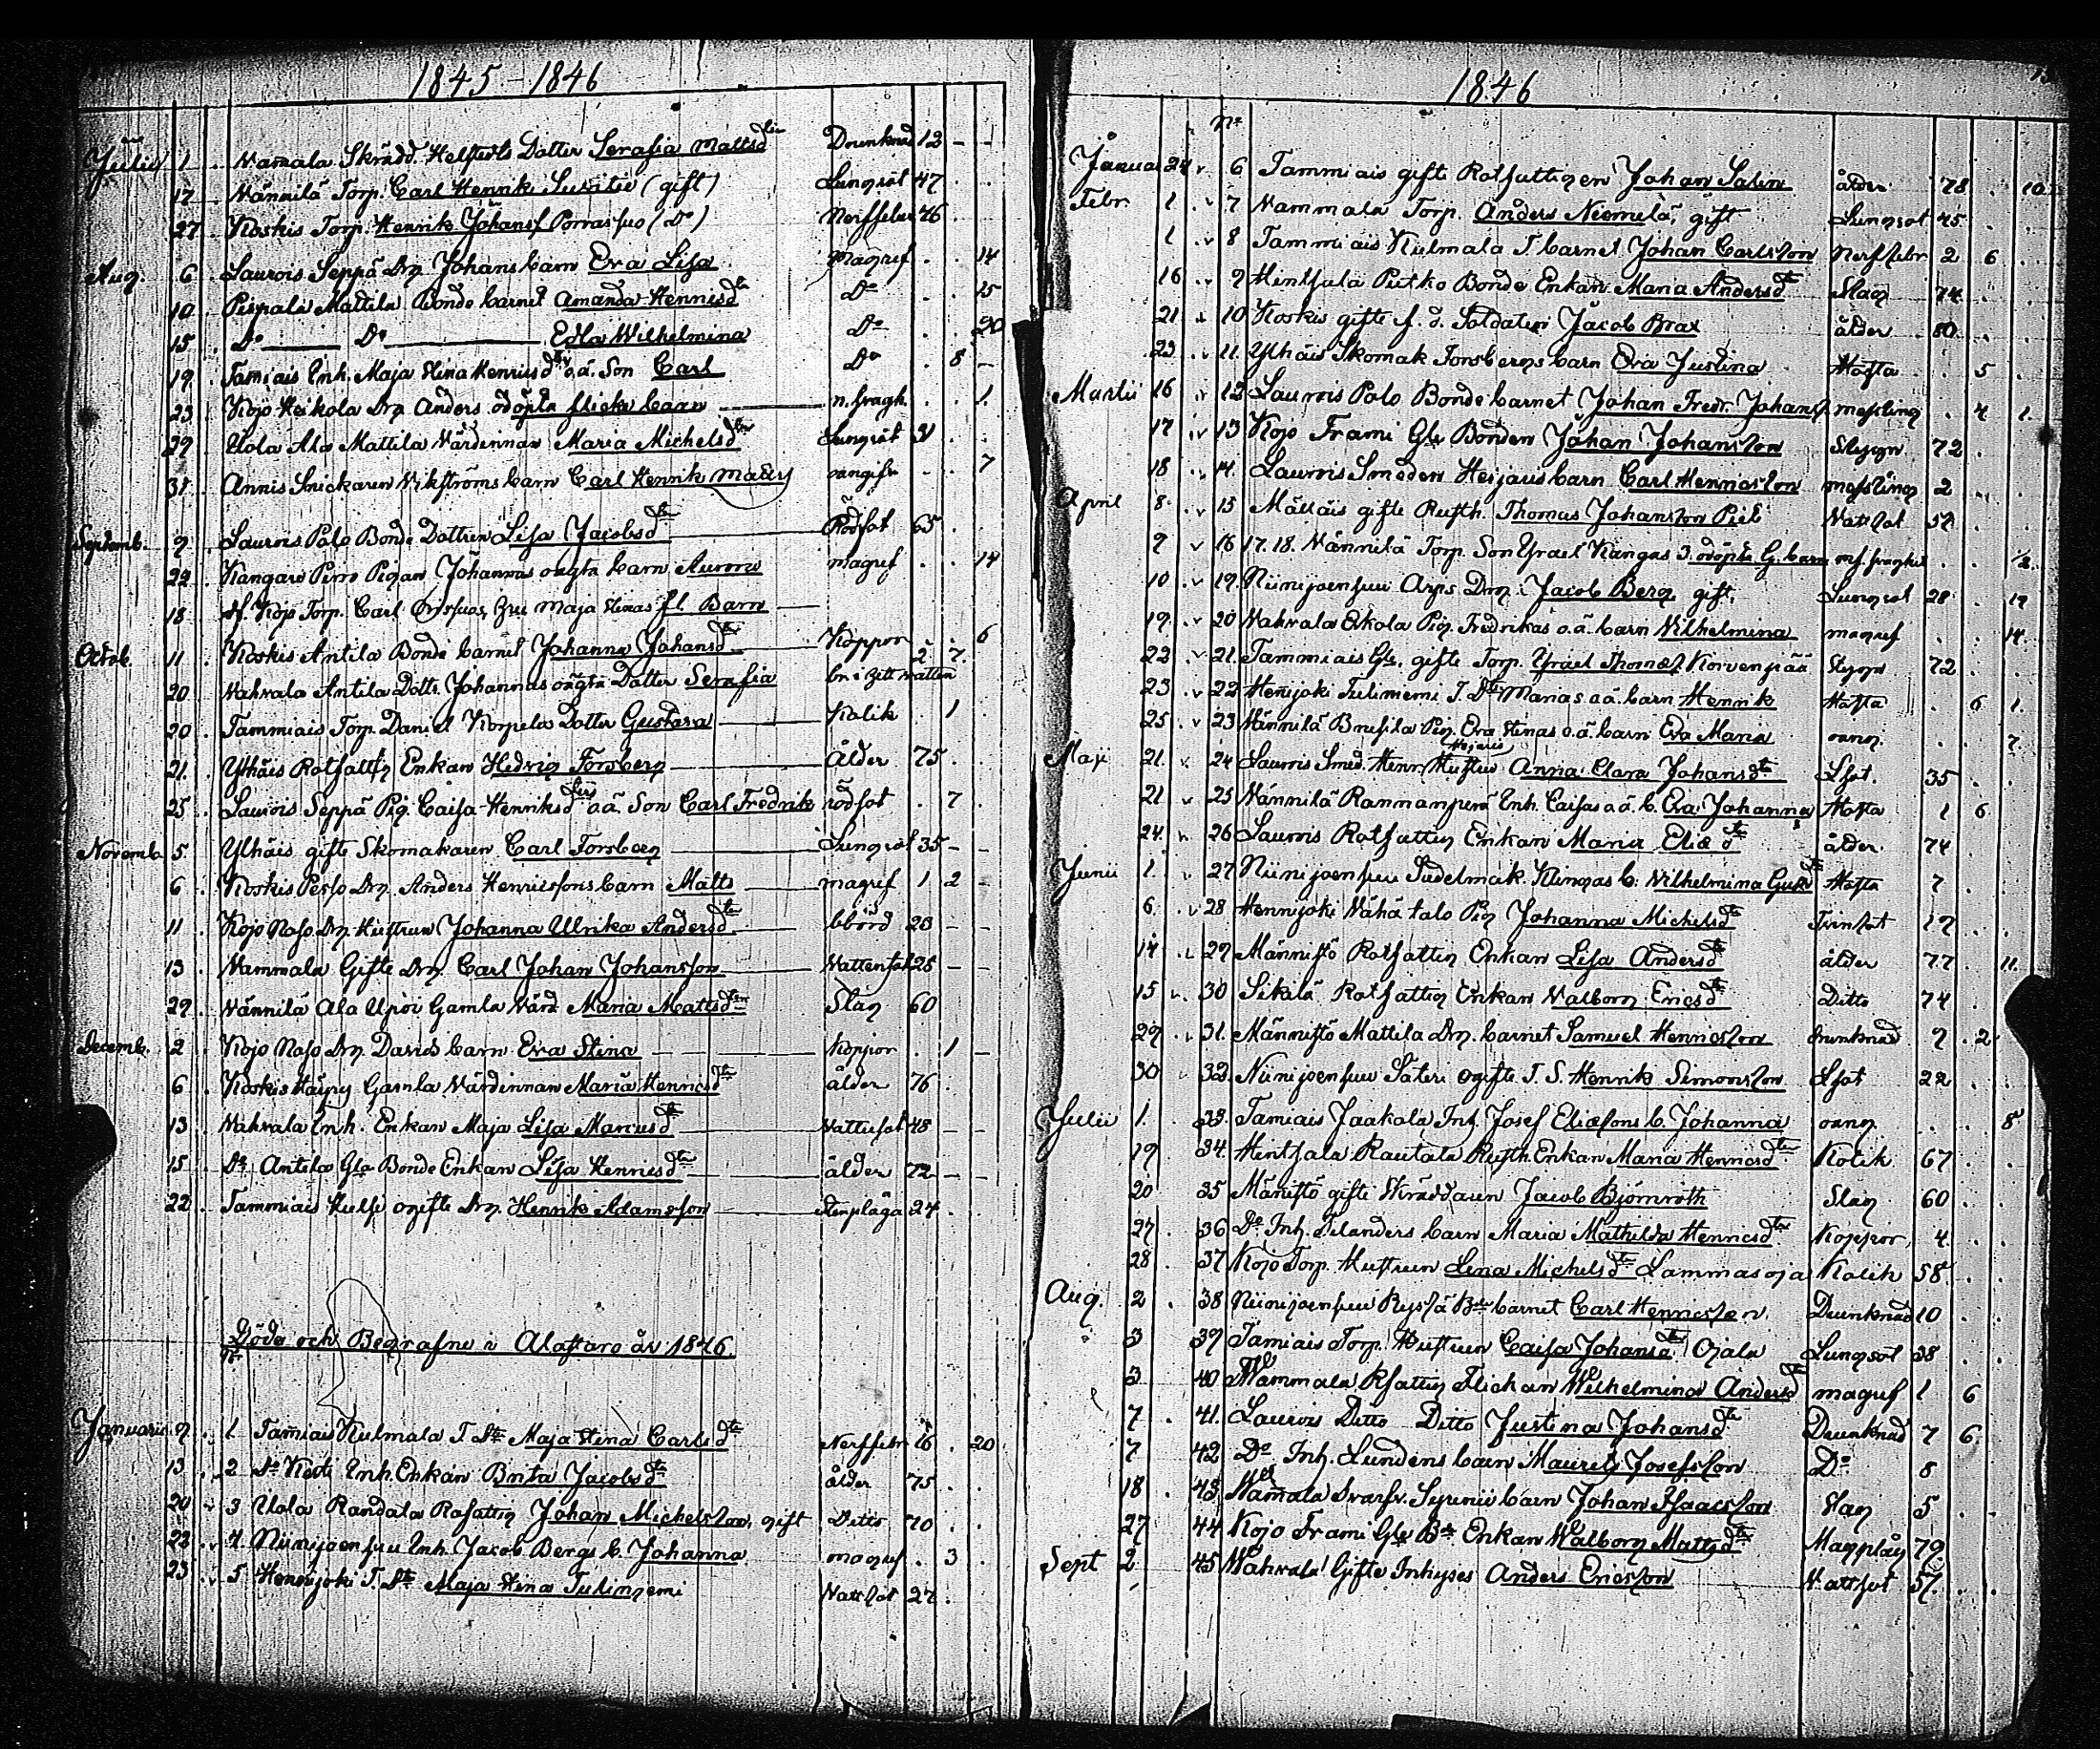 1845-1846
Julii 1 Namala Skrädd. Helstedts Dotter Serafia Mattsdtr Drunknad 12 - -
17 Männilä Torp. Carl Henrik (gift) Lungsot 47
27 Koskis Torp. Henrik Johansf Porras (Do) Nerffeber 46
Aug. 6 Laurois Seppä Drg Johans barn Eva Lisa Magref . . 14
10 Pispala Mattila Bonde barnet Amanda Henricsdtr Do . . 15
15 Do Do Edla Wilhelmina Do . . 20
19 Tamiais Enh. Maja Stina Henricsdtr o.ä. Son Carl Do . 8 -
23 Kojo Heikola Drg Anders odöpta flicka barn n. fragh. . . 1.
29 Uola Ala Mattila Värdinnan Maria Michelsdtr Lungsöt
31 Annis Snickaren Wikströms barn Carl Henrik oangifn . . 7
Septemb. 9 Laurois Palo Bonde Dottren Lisa Jacobsdtr Rödsot 65
22 Kangars Perro Pigan Johannas oägta barn Aurora magref . . 14
18 Kojo Torp. Carl Maja Stinas fl. Barn
Octob. 11 Koskis Antila Bonde barnet Johanna Johansdtr Koppor 2 7. 6
20 Vahvala Antila Dottr Johannas oägta Dotter Serafia br. i hett vatten
20 Tammiais Torp. Daniel Korpela Dotter Gustava Kolik . 1
21. Ylhäis Rotfattig Enkan Hedvig Forsberg Ålder 75
25 Laurois Seppä Pig. Caisa Henriksdtr o.ä. Son Carl Fredrik rödsot . 7
Novemb. 5 Ylhäis gifte Skomakaren Carl Forsberg Lungsöt 35 - -
6 Koskis Drg. Anders Henricssons barn Matts magref 1 2 -
11 Kojo Naso Drg Hustrun Johanna Ulrika Andersdtr bbörd 23 - -
13 Nammala Gifte Drg. Carl Johan Johansson Vattensot 28 - -
29 Männilä Ala Upoi Gamla Värd. Maria Mattsdtr Slag 60
Decemb. 2 Kojo Naso Drg Davids barn Eva Stina Koppor . 1 -
6 Koskis Häyry Gamla Värdinnan Maria Henricsdtr ålder 76
13 Vahvala Inh. Enkan Maja Lisa Marcusdtr Vattusot 48 - -
15 Do Antila Gla Bonde Enkan Lisa Henricsdtr ålder 72 - -
22 Tammiais ogifte Drg. Henrik Adamsson stenplåga 24
Döde och Begrafne i Alastaro år 1846.
No
Januarii 9 1 Tamiais Kulmala T. Dtr Maja Stina Carlsdtr Nerffebr 16 . 20
13 2 Do Inh. Enkan Brita Jacobsdtr ålder 75
20 3 Uola Randala Rofattig Johan Michelsson, gift Ditto 70
22 4. Niinijoensuu Inh. Jacob Bergs b. Johanna magref . 3
23 5 Hennijoki T. Dtr Maja Stina Tulinjemi Vattsot 27
1846
No
Januar 24 6 Tammiais gifte Rotfattigen Johan Salin ålder 78 . 10
Febr 1 7 Nammala Torp. Anders Niemilä, gift Lungsot 45
1 8 Tammiais Kulmala T. barnet Johan Carlsson Nerffebr 2 6
16 9 Hintsala Pietko Bonde Enkan Maria Andersdtr Slag 74
21 10 Koskis gifte f. d. Soldaten Jacob Brax ålder 80
23 11. Ylhäis Skomak Forsbergs barn Eva Justina Hosta . 5
Martii 16 12 Laurois Palo Bonde barnet Johan Fredr. Johanss messling . 4 1
17 13 Kojo Frami Gla Bonden Johan Johansson Stygn 72
18 14. Laurois Smeden Heijaris barn Carl Henricsson messling 2
April 8 15 Mällais gifte Rusth. Thomas Johansson Vattsot 57
9 16 17. 18. Männilä Torp. Son Israel Kangas 3. odöpta G. barn . . 1/2
10 19. Niinijoensuu Arps Drg. Jacob Berg gift, Lungsot 28 . 19
19. 20 Vahvala Eskola Pig. Fredrikas o.ä. barn Wilhelmina magref . . 14
22 21. Tammiais Gla. gifte Torp. Israel Thomass Korvenpää Stygn 72
23 22 Henijoki Tuliniemi T. Dtr Marias o.ä. barn Henrik Hosta . 6 1.
25 23 Männilä Pig. Eva Stinas o.ä. barn Eva Maria oang. . . 7
Maji 21. 24 Laurois Smed. Henr Heijaris Hustru Anna Clara Johansdtr Lsot. 35
21 25 Männilä Rannanperä Inh. Caisas o.ä. b. Eva Johanna Hosta 1 6
24. 26 Laurois Rotfattig Enkan Maria Eliædtr ålder 74
Junii 1. 27 Niinijoensuu Sadelmak. Klingas b. Wilhelmina Gustdtr Hosta 7
6. 28 Hennijoki Vähätalo Pig Johanna Michelsdtr Tvinsot 19
14 29 Männistö Rotfattig Enkan Lisa Andersdtr ålder 77 . 11.
15 30 Sikilä Rotfattig Enkan Valborg Ericsdtr Ditto 74
29 31. Männistö Mattila Drg. barnet Samuel Henricsson drunknad 9 2
30 32. Niinijoensuu Säteri ogifte T. S. Henrik Simonsson Lsot 22
Julii 1. 33. Tamiais Jaakola Inh. Josef Eliæsons b. Johanna oang . . 8
19. 34. Hintsala Rautala Rusth. Enkan Maria Henricsdtr Kolik 67
20 35 Mänistö gifte Skräddaren Jacob Björnroth Slag 60
27. 36 Do. Inh. Filanders barn Maria Mathilda Henricsdtr Koppor, 4
28 37 Kojo Torp. Hustrun Lena Michelsdtr Lammasoja Kolik 58
Aug. 2 38 Niinijoensuu Rysä Bde barnet Carl Henricsson Drunknad 10
3 39 Tamiais Torp. Hustrun Caisa Johansd. Ojala Lungsot 38
3 40 Wammala Rfattig Flickan Wilhelmina Andersdtr magref 1 6
7. 41. Laurois Ditto Ditto Justina Johansdtr Drunknad 7 6
7 42 Do Inh. Lundens barn Maurits Josefsson Do 8
18. 43. Wamala Svarfv. barn Johan Isaacsson Slag 5
27 44 Kojo Frami Gla Bde Enkan Walborg Mattsdtr Magplåg 79
Sept 2 45 Wahvala Gifte Inhyses Anders Ericsson Vattsot 57.